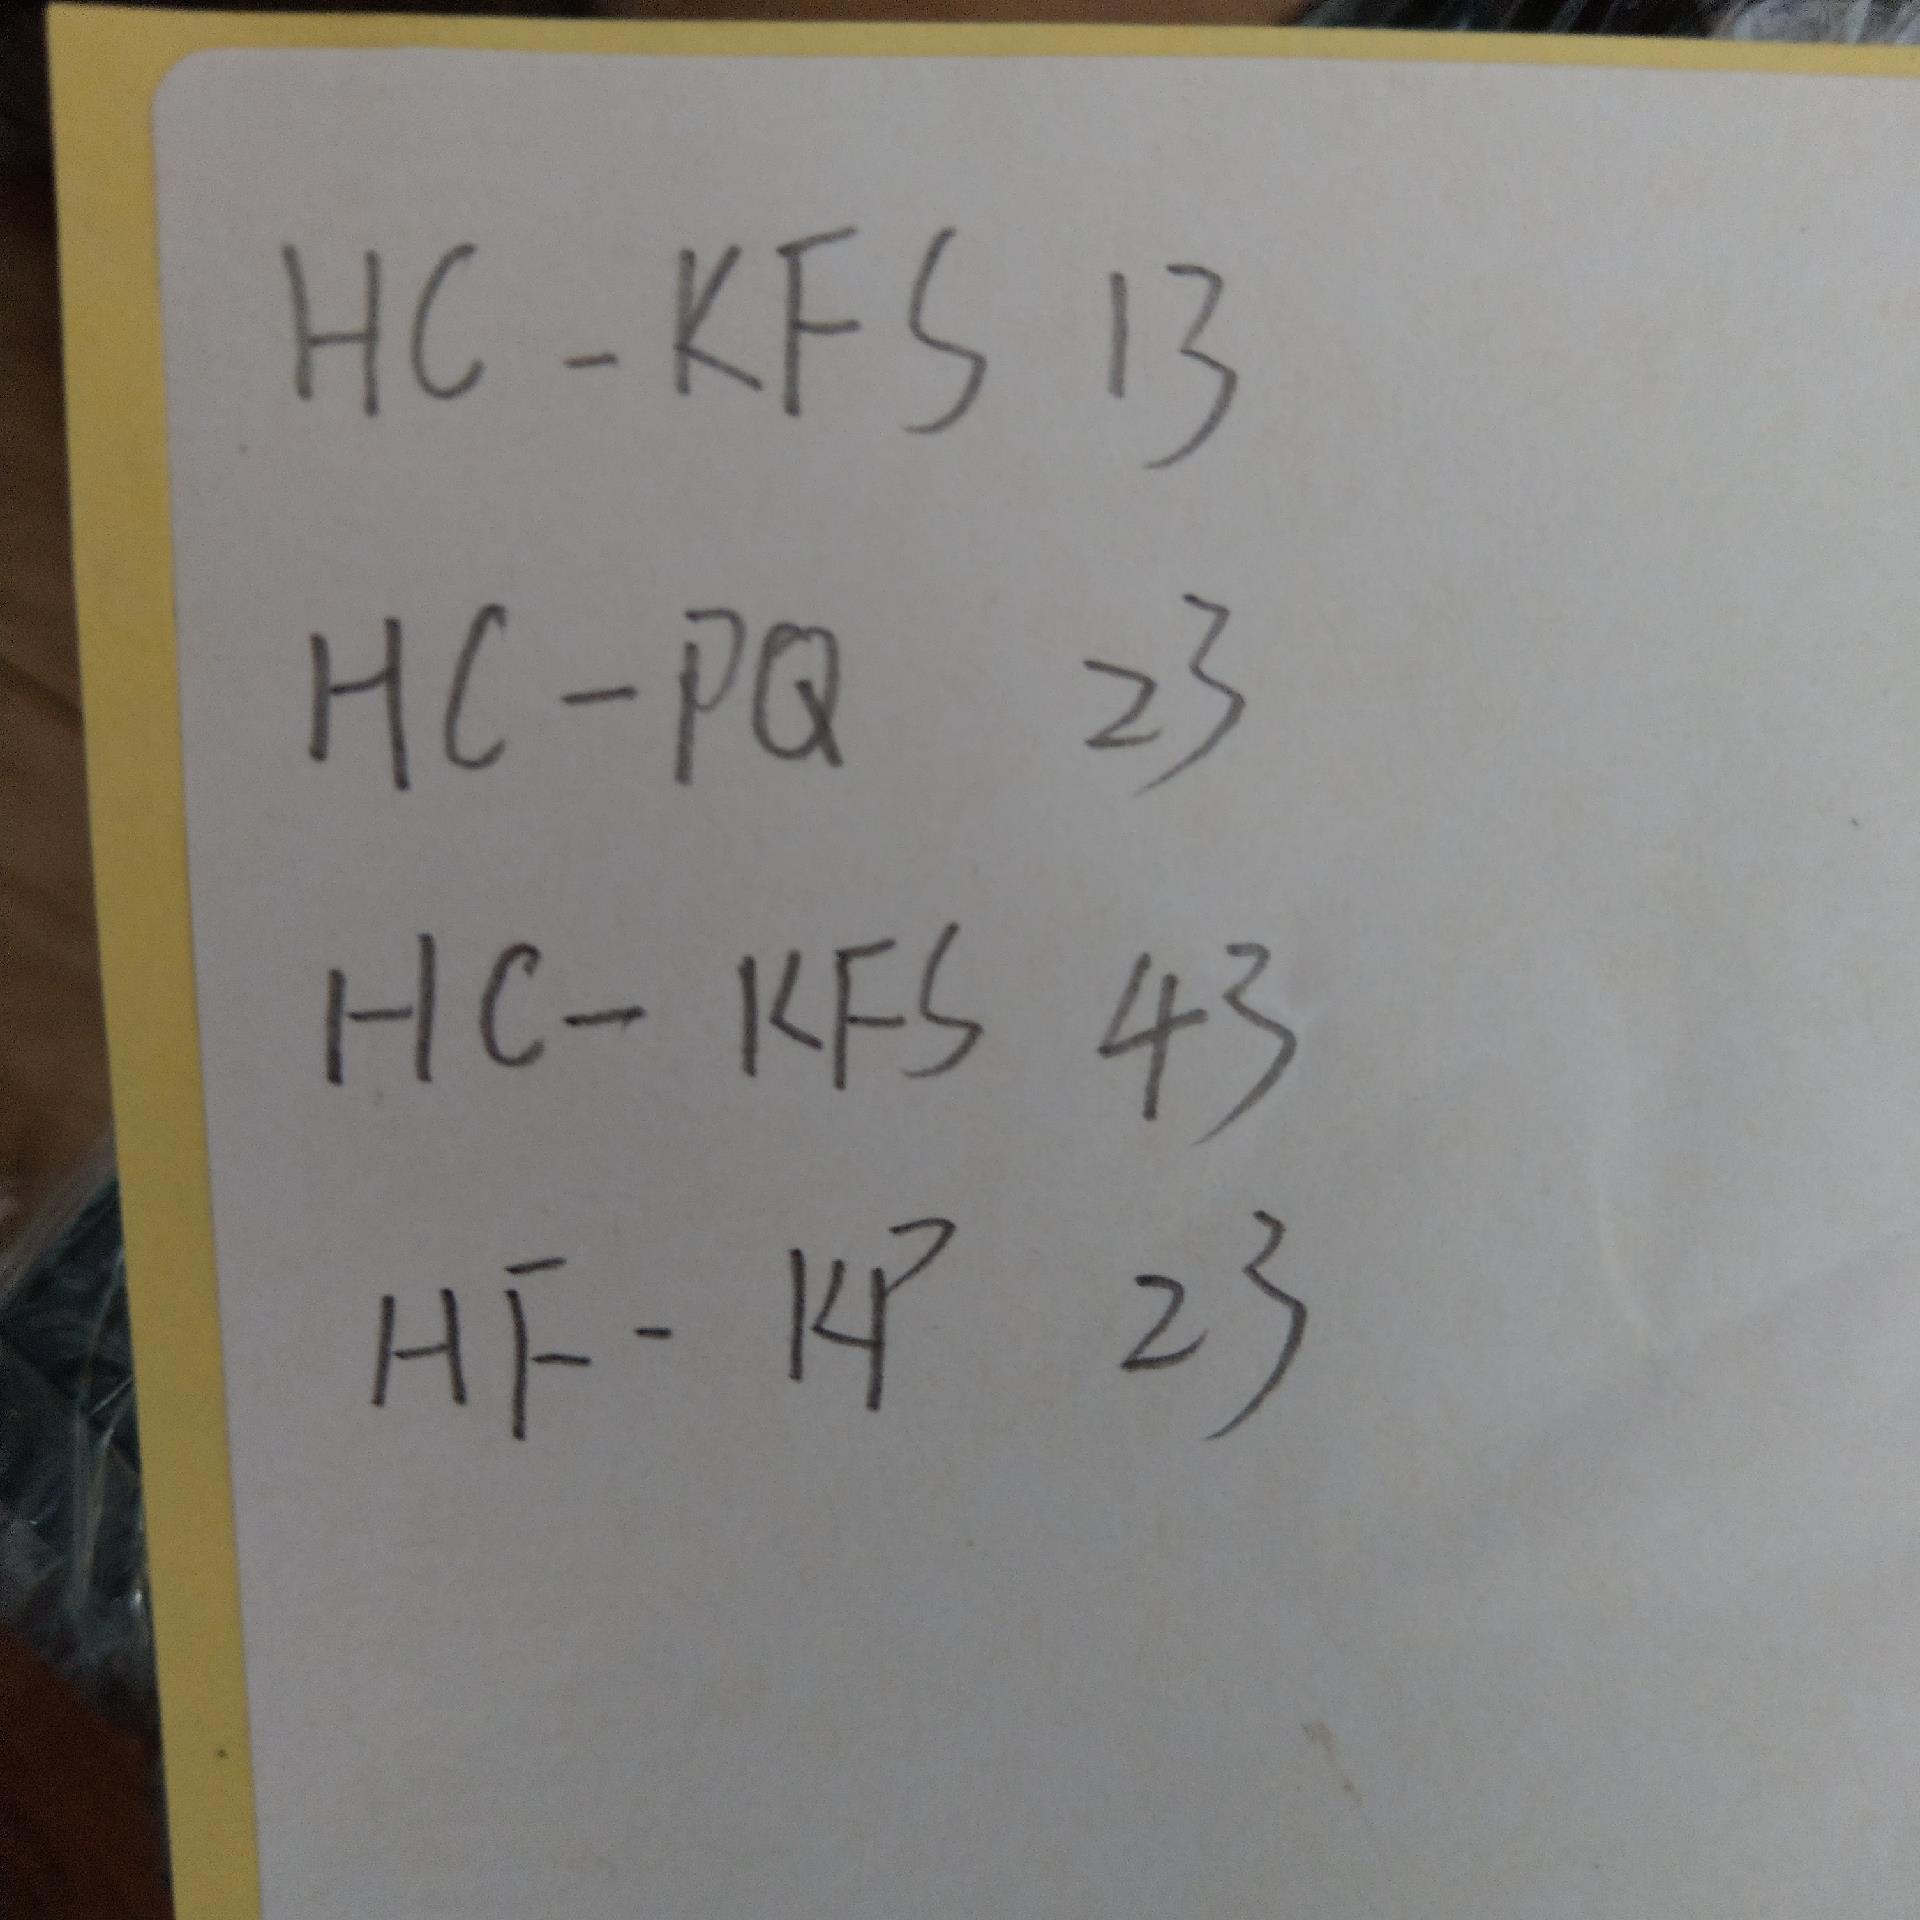 HC-KFS 13
HC-PQ 23
HC-KFS 43
HF-KP 23